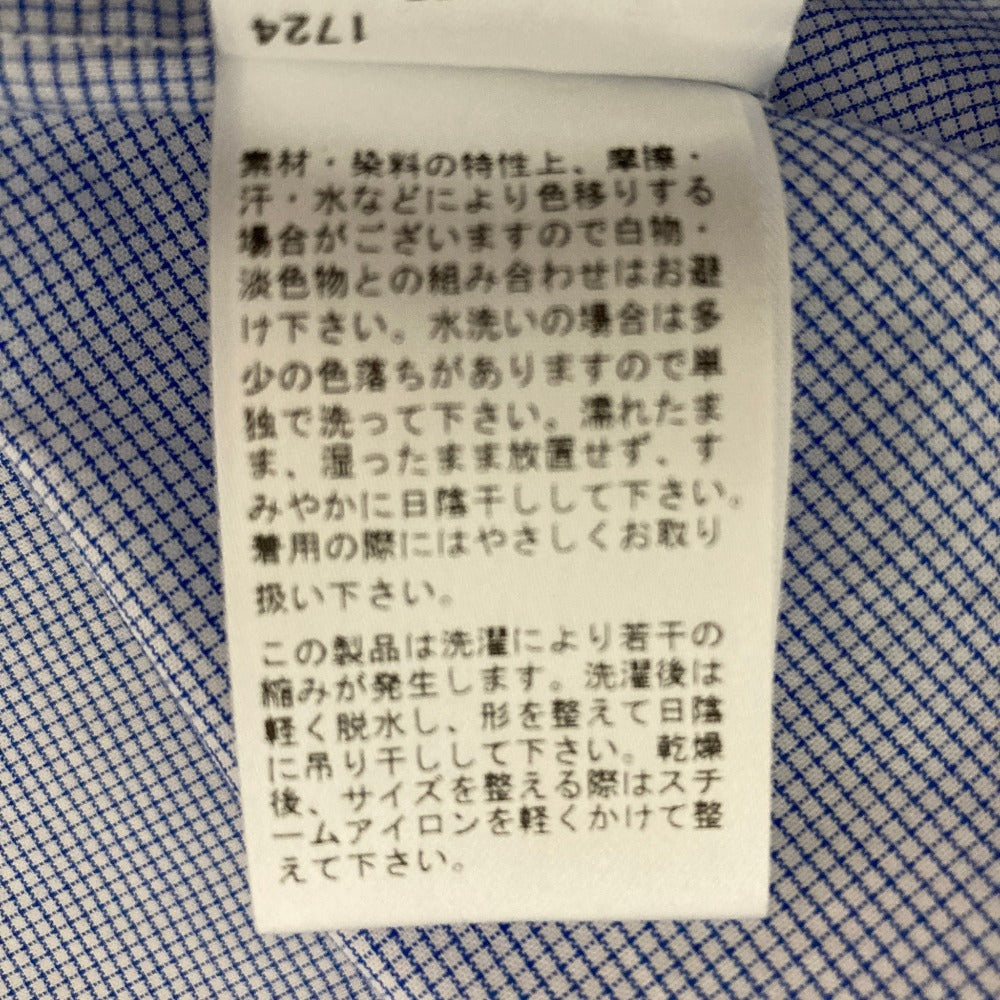 1724
素材・染料の特性上、摩擦・
汗・水などにより色移りする
場合がございますので白物・
淡色物との組み合わせはお避
け下さい。水洗いの場合は多
少の色落ちがありますので単
独で洗って下さい。濡れたま
ま、湿ったまま放置せず、す
みやかに日陰干しして下さい。
着用の際にはやさしくお取り
扱い下さい。
この製品は洗濯により若干の
縮みが発生します。洗濯後は
軽く脱水し、形を整えて日陰
に吊り干しして下さい。乾燥
後、サイズを整える際はスチ
ームアイロンを軽くかけて整
えて下さい。